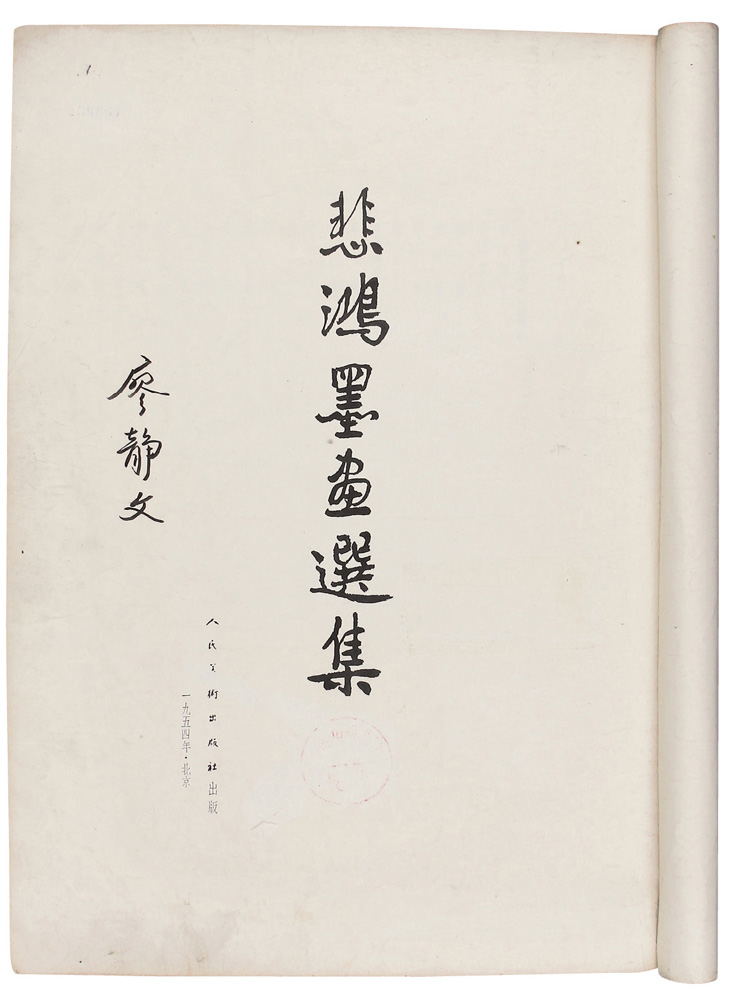 悲鴻墨画選集
人民美術出版社出版
一九五四年·北京
廖静文